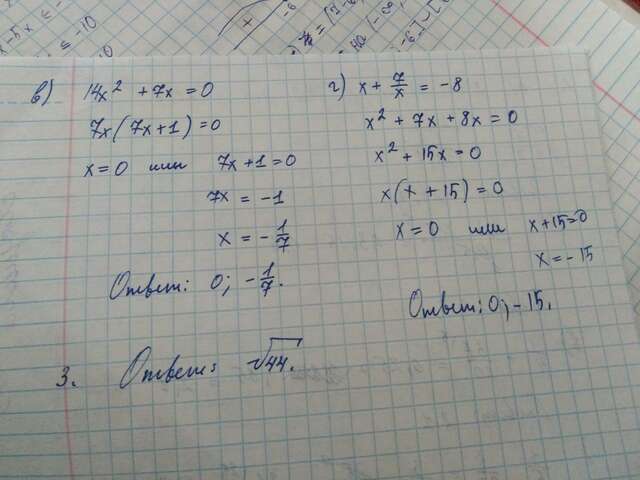 в) 14x² + 7x = 0
7x(7x+1) = 0
x = 0 или 7x+1 = 0
7x = -1
x = -1/7
Ответ: 0; -1/7.
г) x + 7/x = -8
x² + 7x + 8x = 0
x² + 15x = 0
x(x + 15) = 0
x = 0 или x+15=0
x = -15
Ответ: 0; -15.
3. Ответ: √44.